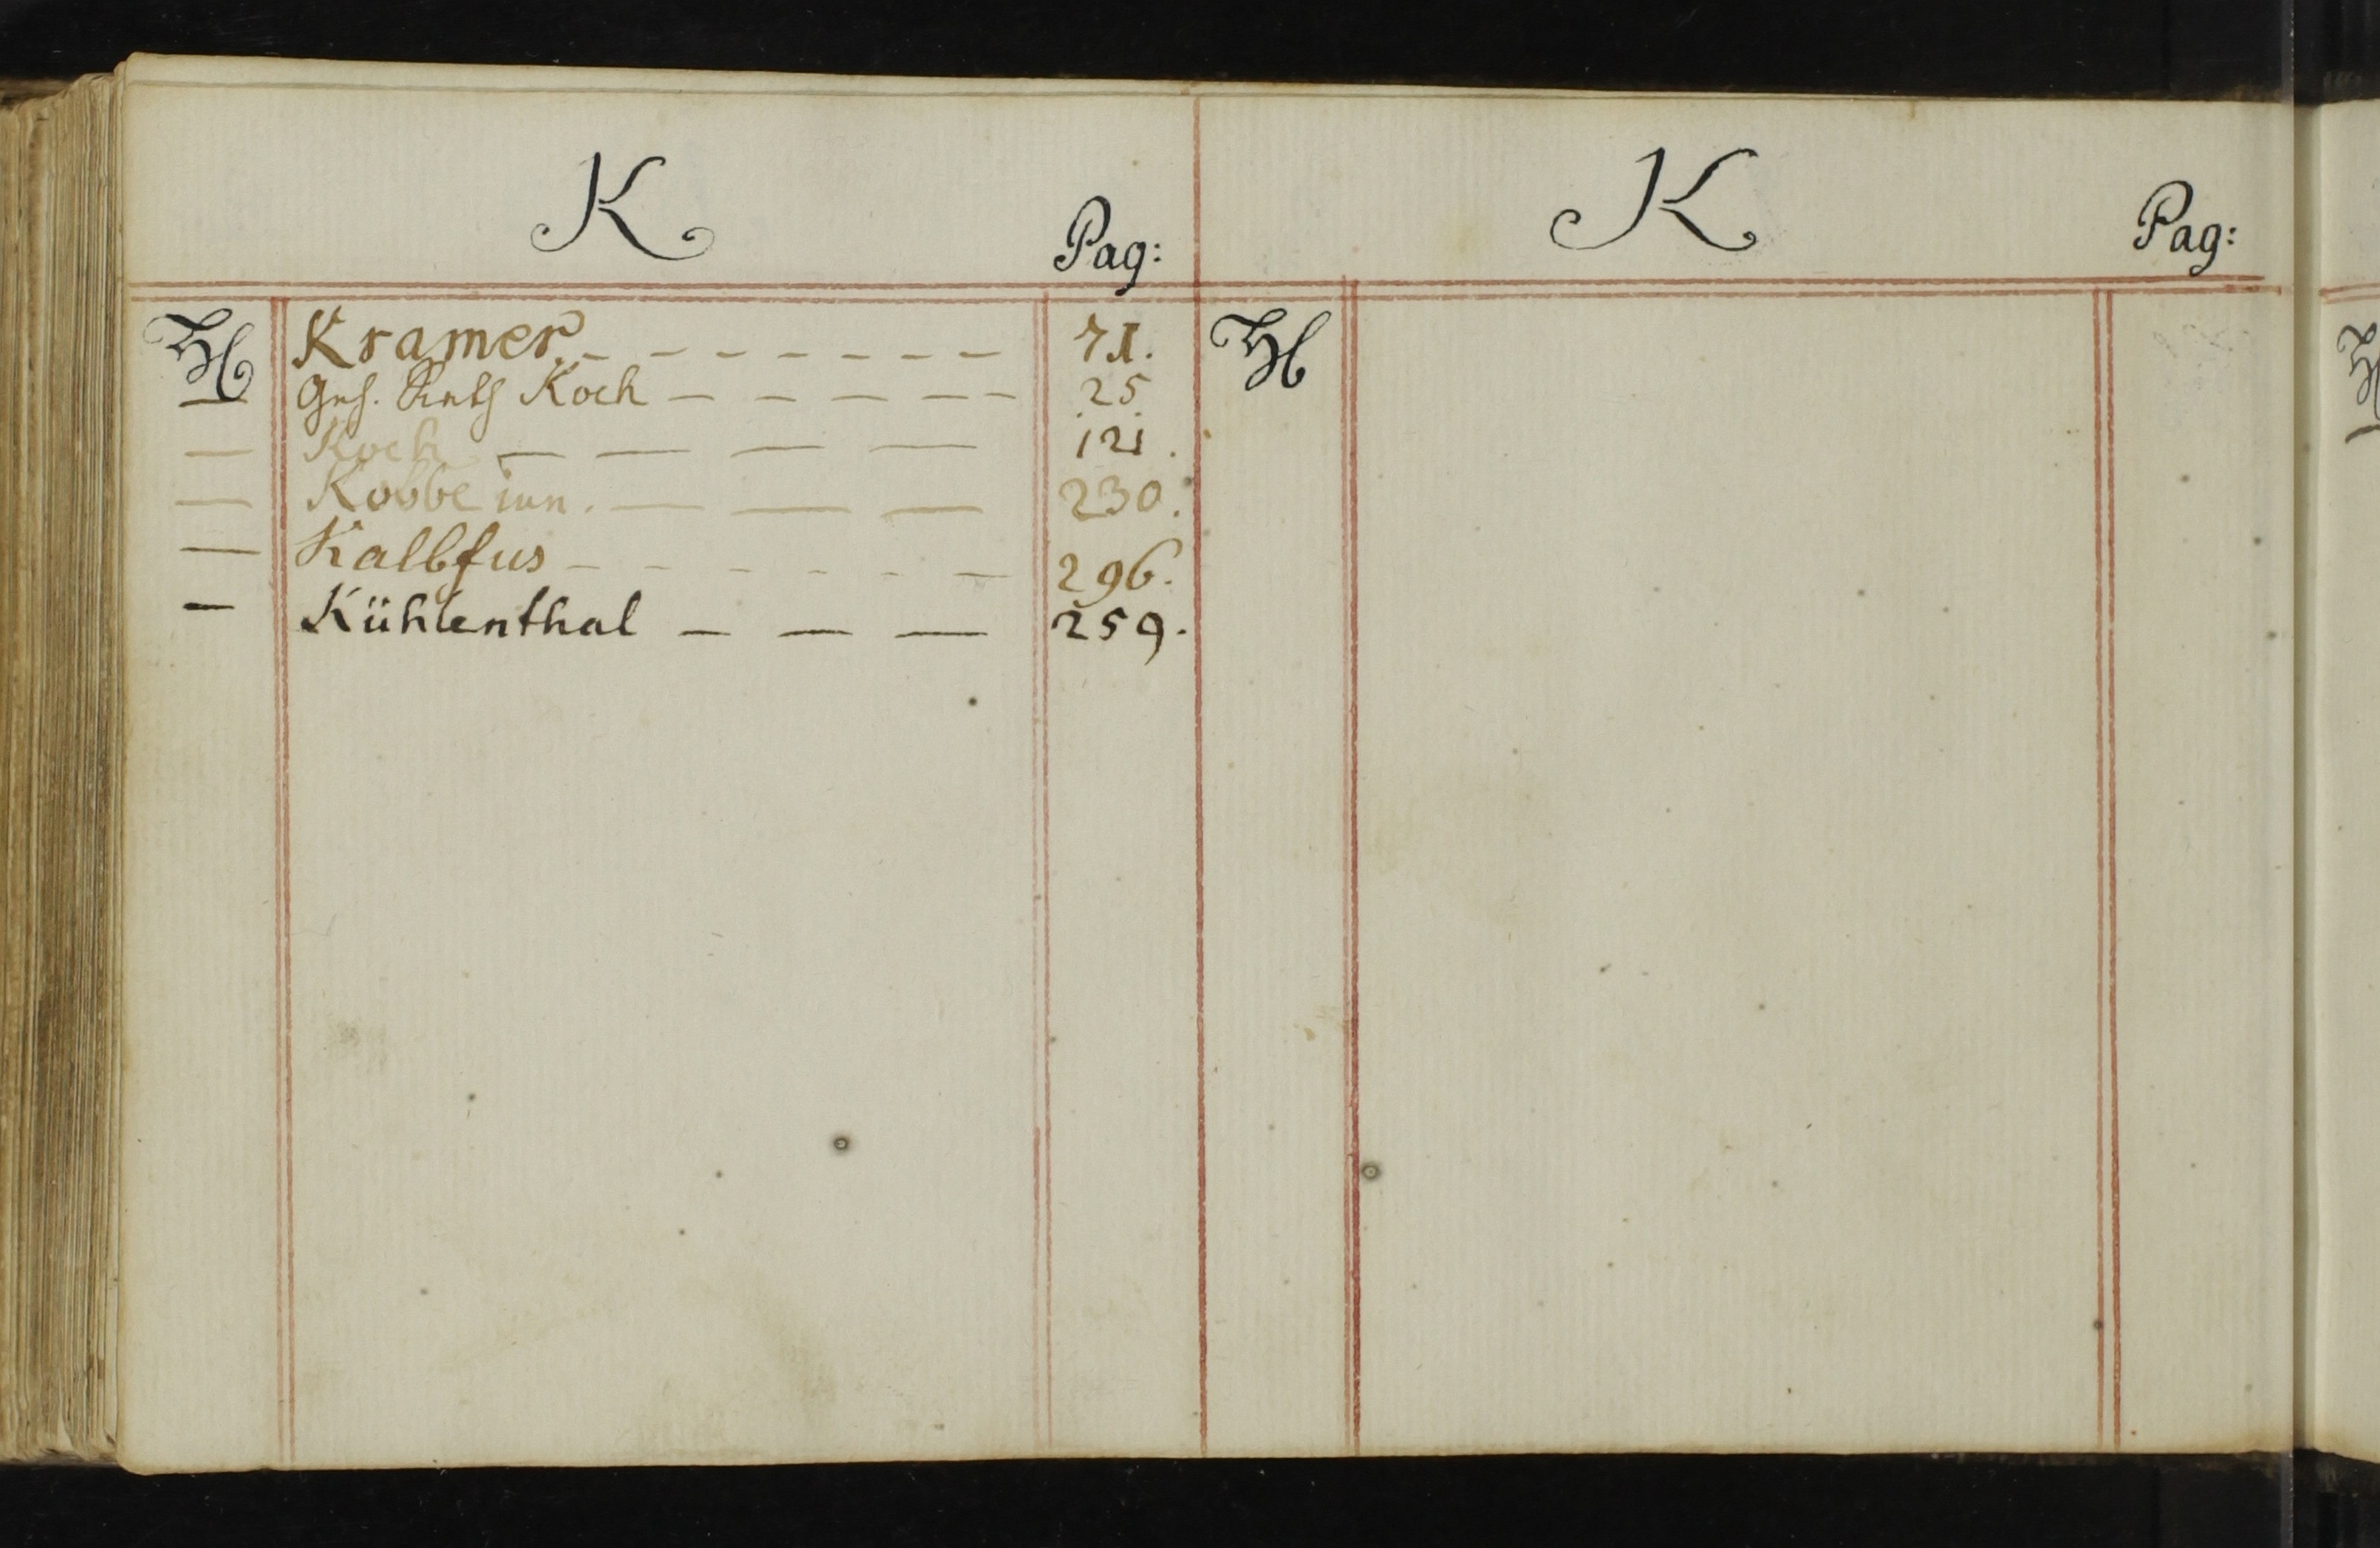 K
Pag:
H Kramer. - - - - - - - - 71.
— Geh. Rath Koch - - - - - - 25
— Koch — — — — 121.
— Kobbe iun. — — — 230.
— Kalbfus - - - - - - - 296.
— Kühlenthal — — — 259.
K
Pag:
H